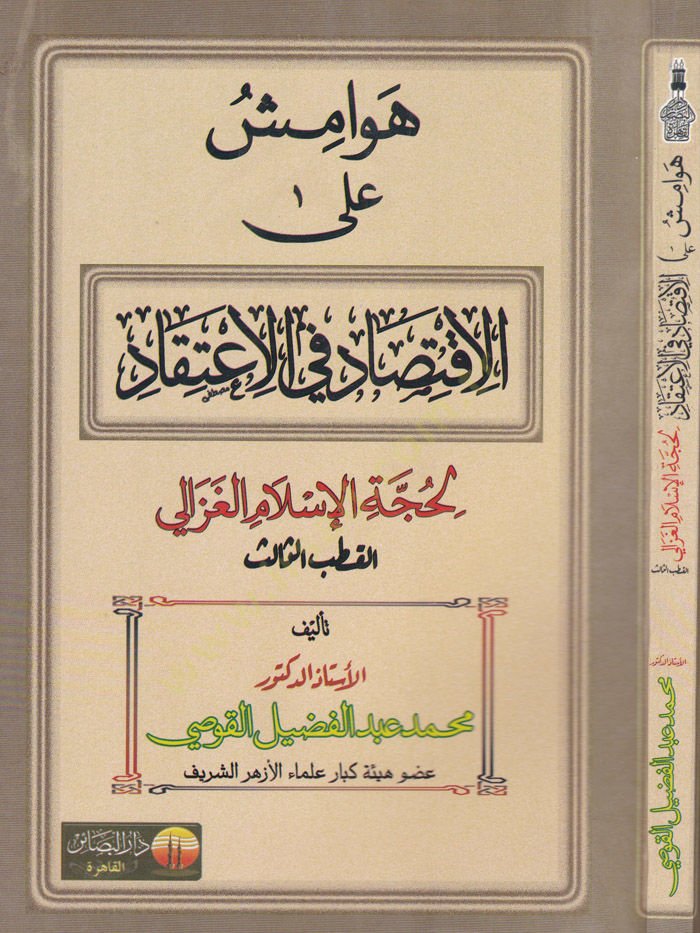 هَوامِشُ
على
الاِقْتِصَاد في الاِعْتِقَادِ
لِحُجَّةِ الإِسْلَامِ الغَزَالي
القطب الثالث
تأليف
الأستاذ الدكتور
محمد عبد الفضيل القوصي
عضو هيئة كبار علماء الأزهر الشريف
دار البصائر
القاهرة
هَوامِشُ على الاِقْتِصَاد في الاِعْتِقَادِ
لِحُجَّةِ الإِسْلَامِ الغَزَالي
القطب الثالث
الأستاذ الدكتور
محمد عبد الفضيل القوصي